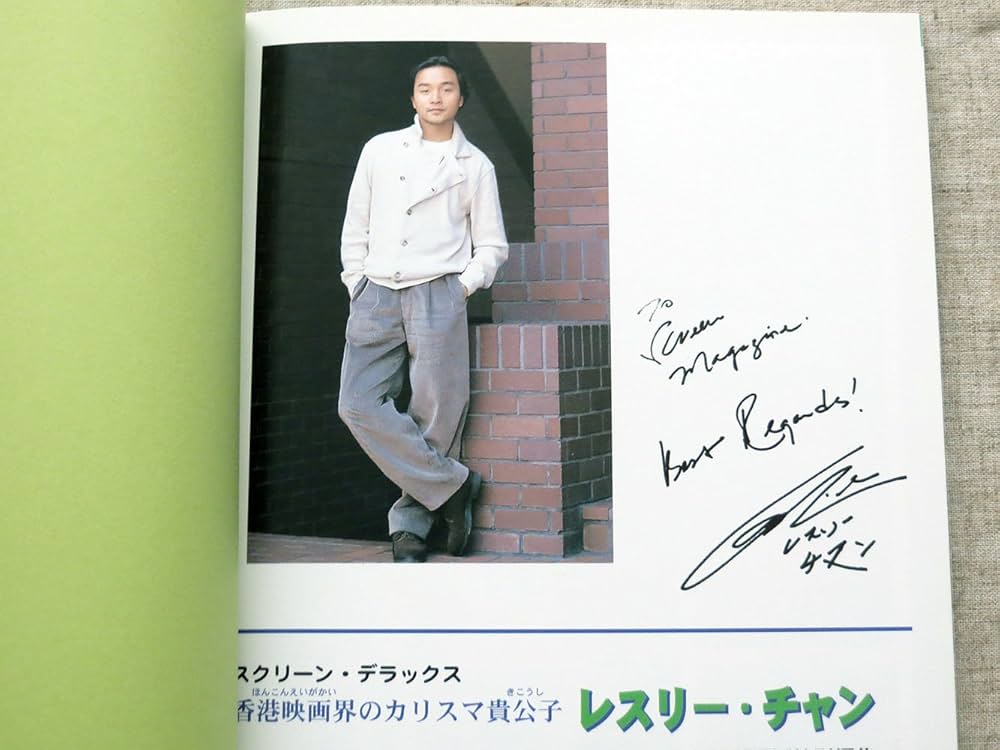 To
Screen
Magazine.
Best Regards!
レスリー
チャン
スクリーン・デラックス
ほんこんえいがかい きこうし
香港映画界のカリスマ貴公子 レスリー・チャン